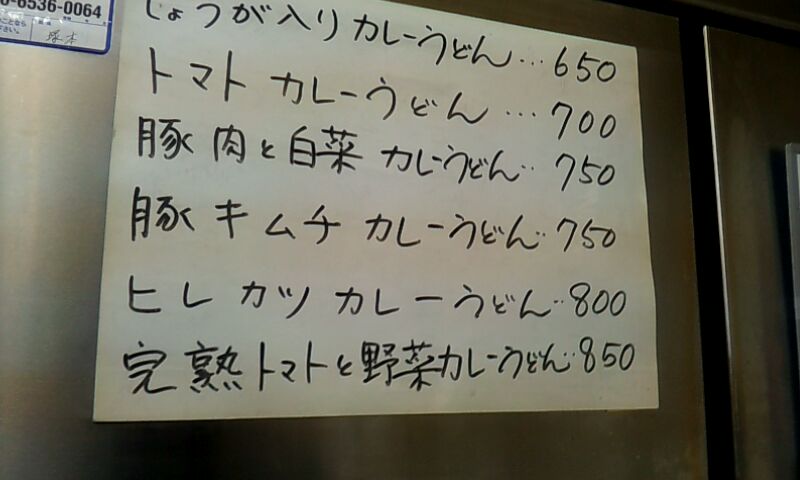 6536-0064
塚本
しょうが入りカレーうどん…650
トマトカレーうどん…700
豚肉と白菜カレーうどん…750
豚キムチカレーうどん…750
ヒレカツカレーうどん…800
完熟トマトと野菜カレーうどん…850